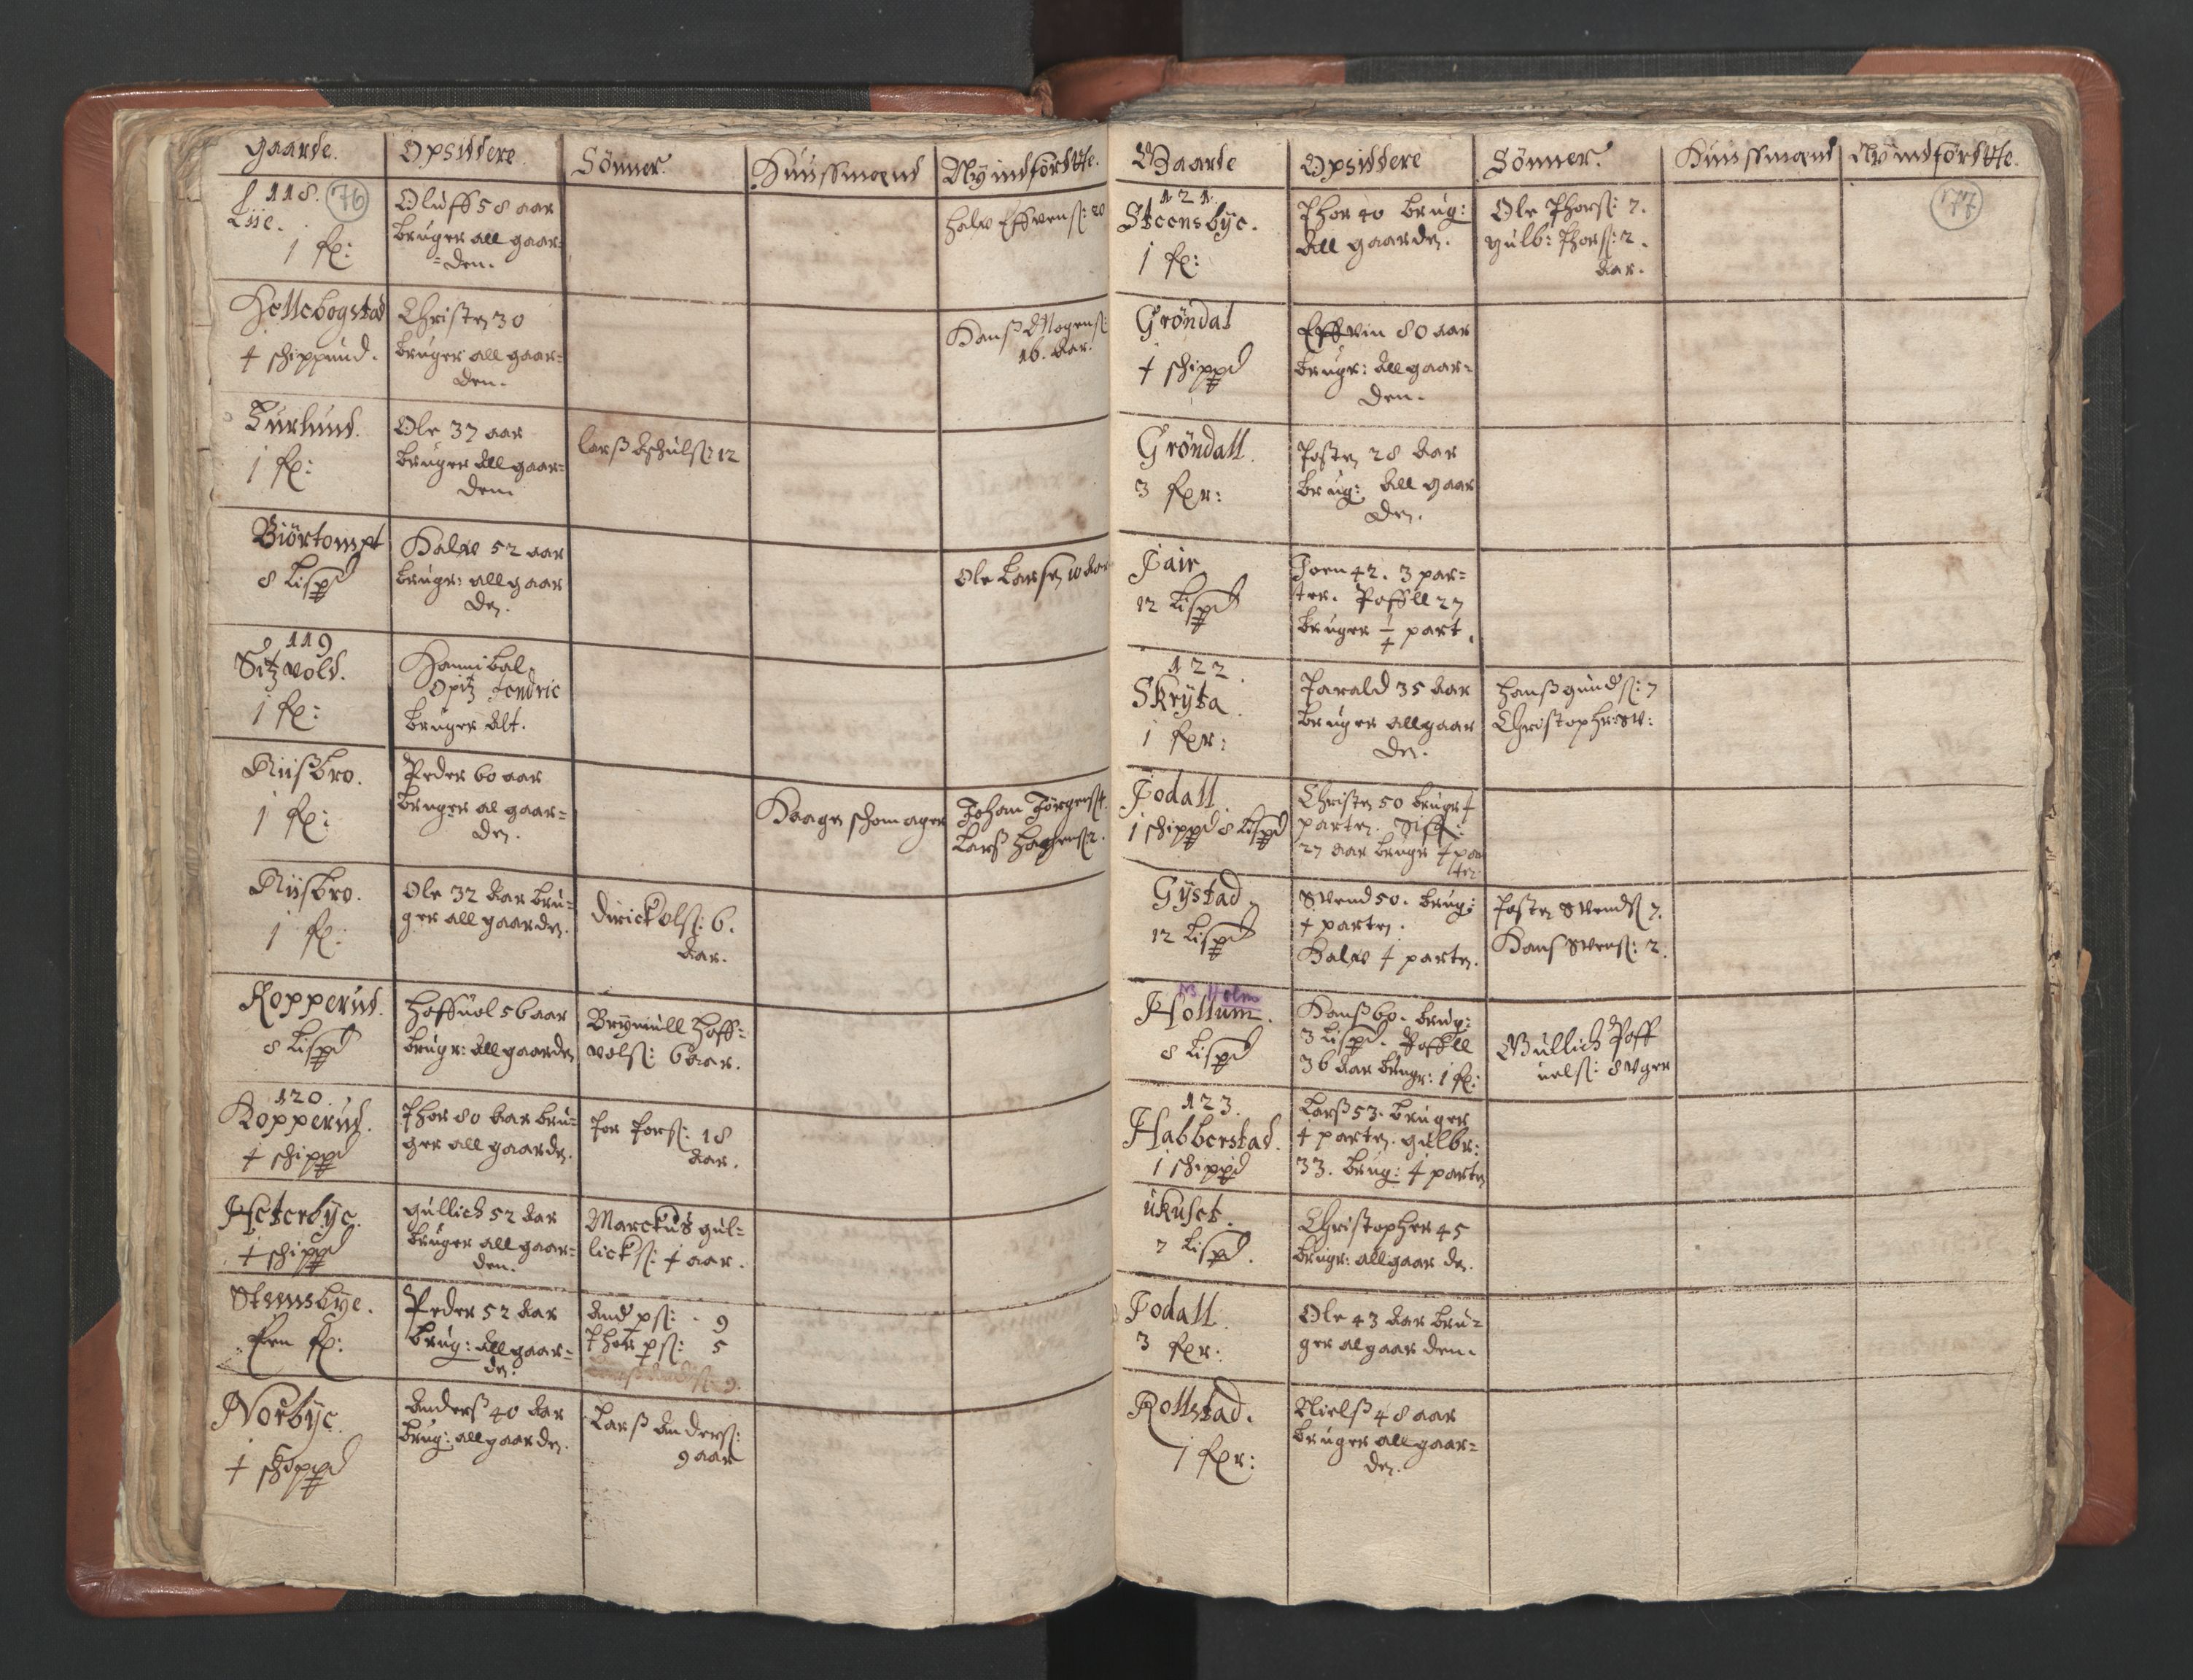 Gaarde. Opsiddere Sønner. Huussmænd Nyindførdtte.
118. 76
Lije.
1 fl:
Oluff 58 aar
bruger all gaar=
=den.
Halv Effvens: 20
Hellebogstad
4 schippund.
Christen 30
bruger all gaar=
den.
Hanß Mogens:
16. aar.
Turlund.
1 fl:
Ole 37 aar
bruger all gaar=
den
Larß Aschuls: 12
Biörtompt
8 Lispd
Halv 52 aar
brugr: all gaar
den.
Ole Larsen 10 aar
119
Sitzvold.
1 fl:
Hannibal
Opitz
bruger alt.
Riißbro.
1 fl:
Peder 60 aar
bruger al gaar=
den.
Haagen schomager
Johan Jörgens: 4.
Larß Hagens: 2.
Riisbro.
1 fl:
Ole 32 aar bru=
ger all gaarden.
Dirick ols: 6.
aar.
Kopperud.
8 Lispd
Hoffuol 56 aar
brugr: all gaarden
Brynnull Hoff=
vols: 6 aar.
120.
Kopperud.
4 schippd
Thor 80 aar bru=
ger all gaarden.
Tor Tors: 18
aar.
Heterbye.
4 schippd
Gullich 52 aar
bruger all gaar=
den.
Marckus Gul=
licks: 4 aar.
Stensbye.
Een fl:
Peder 52 aar
brug: all gaar=
den.
And ps: 9
Thor ps: 5
Norbye.
4 schippd
Anders 40 aar
brug: all gaarden.
Larß Anders:
9 aar
Gaarde Opsiddere Sønner. Huussmænd Nyindførdtte.
121. 77
Steensbye.
1 fl:
Thor 40 brug:
all gaarden.
Ole Thors: 7.
Gulb: Thors: 2.
aar.
Gröndal
4 schippd
Effvin 80 aar
brugr: all gaar=
den.
Gröndall.
3 fer:
Tosten 28 aar
brug: all gaar
den.
Jair
12 Lispd
Joen 42. 3 par=
ter. Poffll 27
bruger 1/4 part.
122.
Skryta.
1 fer:
Tarald 35 aar
bruger all gaar
den.
Hanß Gunds: 7
Christopher
Jodall.
1 schippd 8 Lispd
Christen 50 bruger 4
parten. Siff:
27 aar bruger 4 par
ten.
Gystad.
12 Lispd
Svend 50. brug:
4 parten.
Halv 4 parten.
Tosten Svends 7.
Hans Svens: 2.
Holm
Hollum.
8 Lispd
Hanß 60. brug:
3 Lispd. Poffll
36 aar brugr: 1 fl:
Gullich Poff
uels: 8 uger
123.
Habberstad.
1 schippd
Larß 53. bruger
4 parten. Gulbr:
33. brug: 4 parten
Ukuset.
7 Lispd.
Christopher 45
brugr: all gaar den.
Jodall.
3 fer:
Ole 43 aar bru=
ger al gaar den.
Rollstad.
1 fer:
Nielß 48 aar
bruger all gaar=
den.